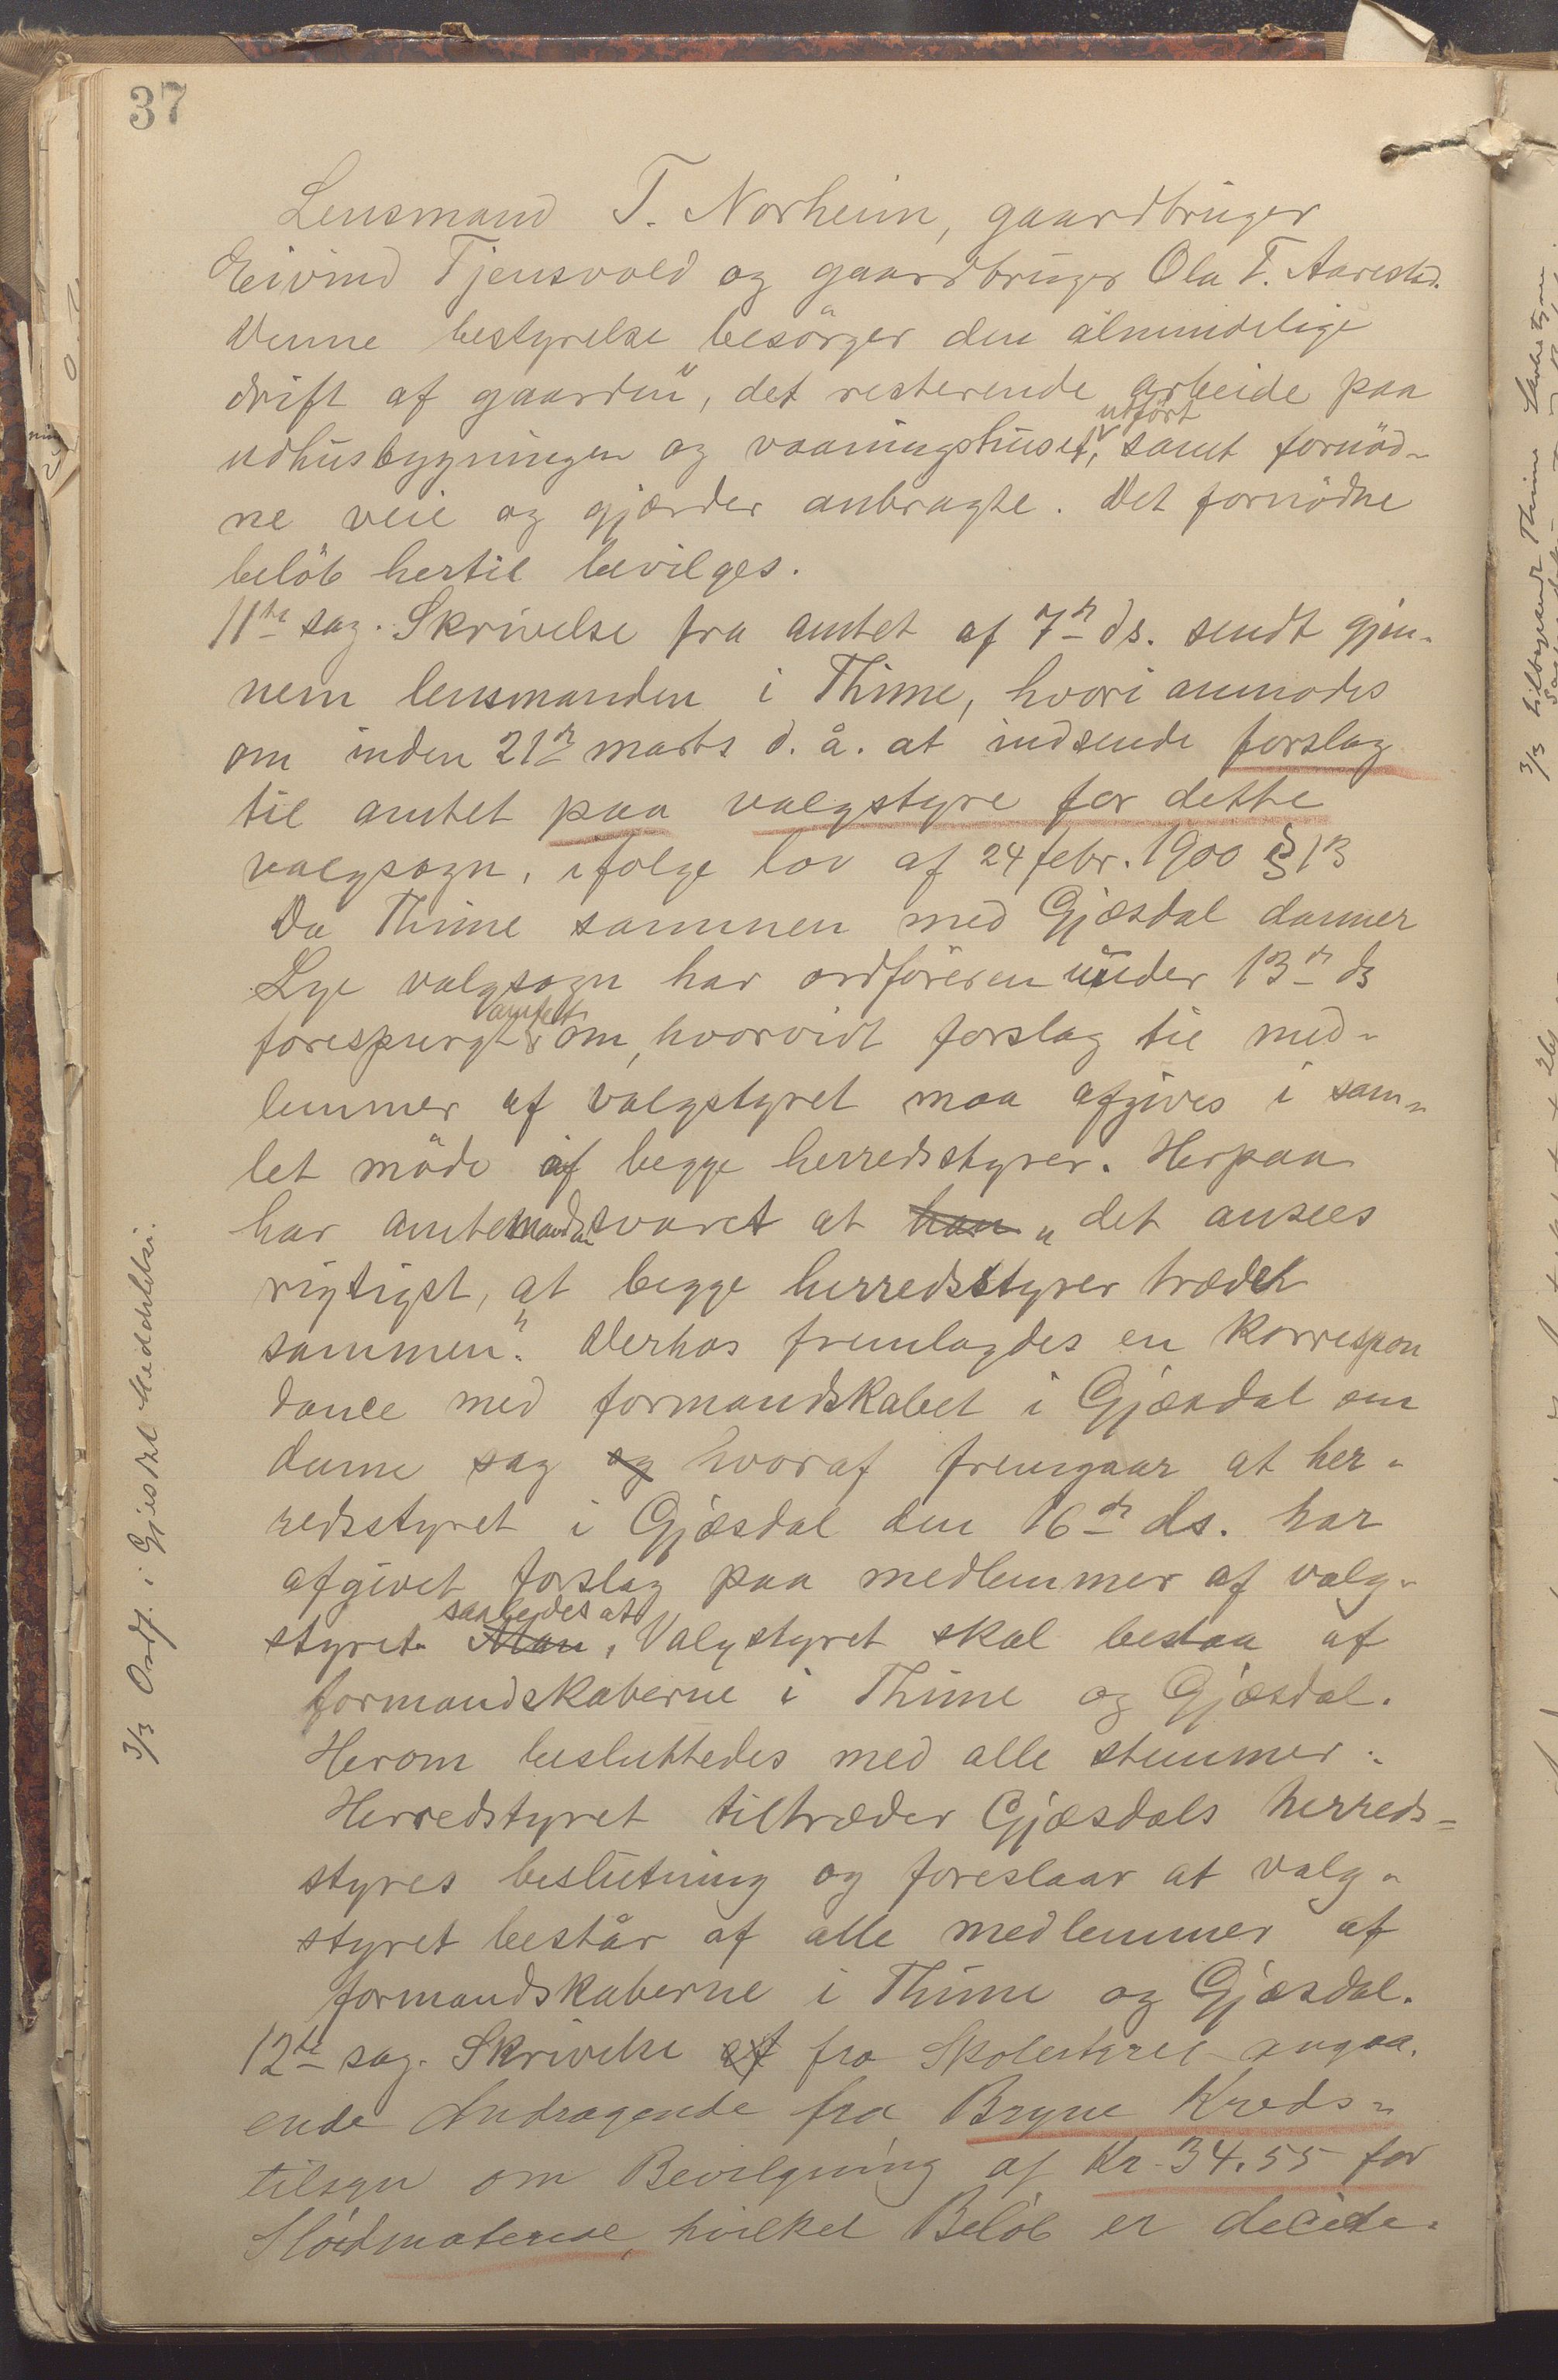 37
Lensmand T. Norheim, gaardbruger
Eivind Tjensvold og gaardbruger Ola T. Aarestad.
Denne bestyrelse besörger den almindelige
drift af gaarden, det resterende arbeide paa
udhusbygningen og vaaningshuset, udfört samt fornöd-
ne veie og gjærder anbragte. Det fornödne
belöb hertil bevilges.
11te sag. Skrivelse fra amtet af 7de ds. sendt gjen-
nem lensmanden i Thime, hvori anmodes
om inden 21de marts d. å. at indsende forslag
til amtet paa valgstyre for dette
valgsogn, ifölge lov af 24 febr. 1900 § 13
Da Thime sammen med Gjæsdal danner
Lye valgsogn har ordföreren under 13de ds
forespurgt amtet om, hvorvidt forslag til med-
lemmer af valgstyret maa afgives i sam-
let möde af begge herredsstyrer. Herpaa
har amtmanden svaret at han "det ansees
rigtigst, at begge herredsstyrer træder
sammen". Derhos fremlagdes en korrespon
dance med formandskabet i Gjæsdal om
denne sag og hvoraf fremgaar at her-
redsstyret i Gjæsdal den 16de ds. har
afgivet forslag paa medlemmer af valg-
styret Man saaledes at Valgstyret skal bestaa af
formandskaberne i Thime og Gjæsdal.
Herom besluttedes med alle stemmer:
Herredstyret tiltræder Gjæsdals herreds-
styres beslutning og foreslaar at valg-
styret består af alle medlemmer af
formandskaberne i Thime og Gjæsdal.
12te sag. Skrivelse af fra Skolestyret angaa-
ende Andragende fra Bryne Kreds-
tilsyn om Bevilgning af Kr. 34.55 for
Slöidmateriel, hvilket Belöb er decide-
3/3 Ordf. i Gjesdal Meddelelse.
3/3 tilbagesendt Thime Skolestyre